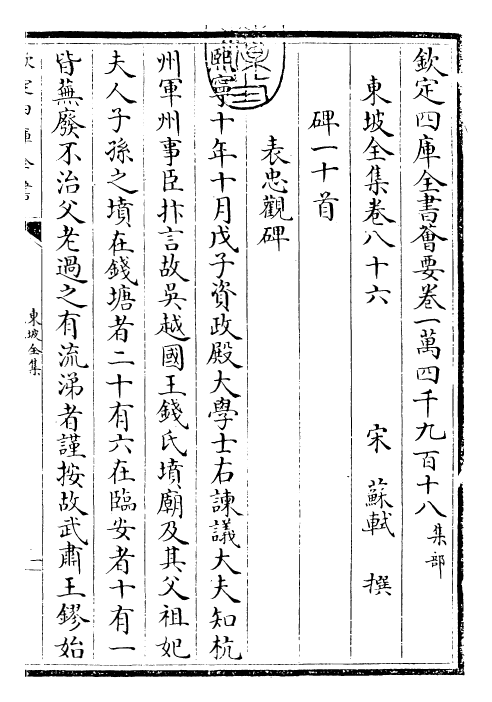 欽定四庫全書薈要卷一萬四千九百十八集部
東坡全集卷八十六
宋 蘇軾 撰
碑一十首
表忠觀碑
熙寧十年十月戊子資政殿大學士右諫議大夫知杭
州軍州事臣抃言故吳越國王錢氏墳廟及其父祖妃
夫人子孫之墳在錢塘者二十有六在臨安者十有一
皆蕪廢不治父老過之有流涕者謹按故武肅王鏐始
東坡全集